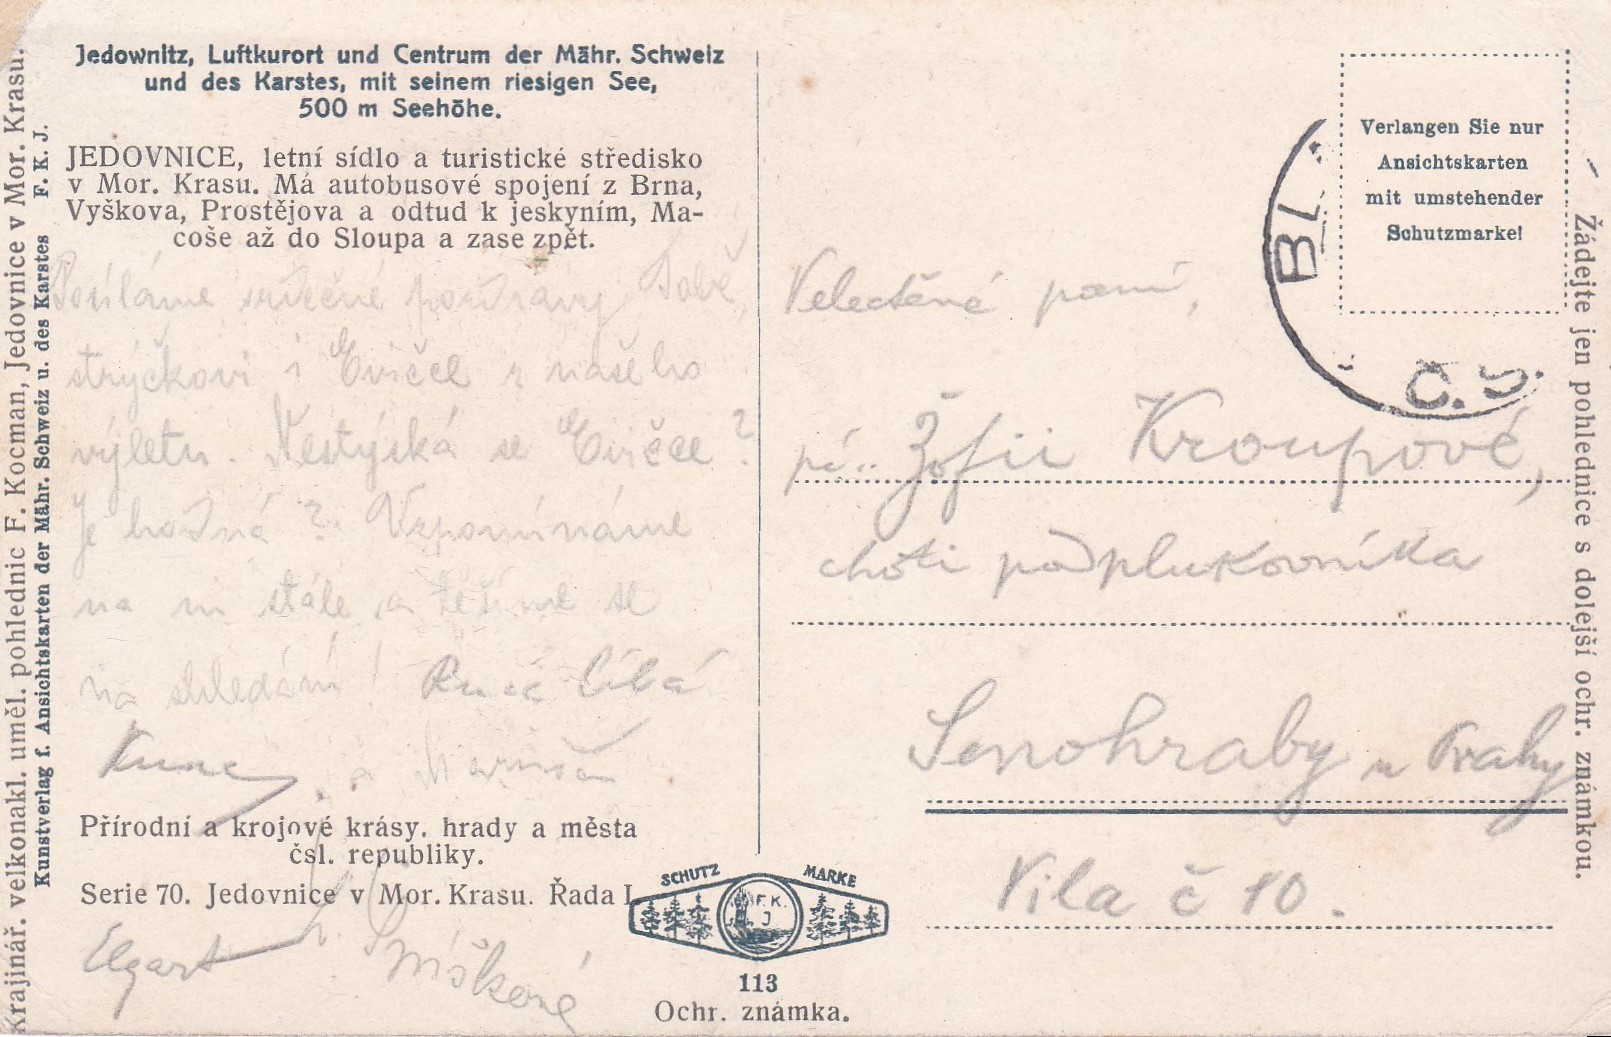 Jedownitz, Luftkurort und Centrum der Mähr. Schweiz
und des Karstes, mit seinem riesigen See,
500 m Seehöhe.
JEDOVNICE, letní sídlo a turistické středisko
v Mor. Krasu. Má autobusové spojení z Brna,
Vyškova, Prostějova a odtud k jeskyním, Ma-
coše až do Sloupa a zase zpět.
Posíláme srdečné pozdravy Tobě
strýčkovi i Evičce z našeho
výletu. Nestýská se Evičce?
Je hodná? Vzpomínáme
na ni stále a těšíme se
na shledání! Ruce líbá
a
Přírodní a krojové krásy, hrady a města
čsl. republiky.
Serie 70. Jedovnice v Mor. Krasu. Řada I.
Krajinář. velkonakl. uměl. pohlednic F. Kocman, Jedovnice v Mor. Krasu.
Kunstverlag f. Ansichtskarten der Mähr. Schweiz u. des Karstes F. K. J.
SCHUTZ MARKE
F. K.
J
113
Ochr. známka.
Verlangen Sie nur
Ansichtskarten
mit umstehender
Schutzmarke!
BL
Č. S.
Velectěná paní,
pí.. Žofii Kroupové,
choti podplukovníka
Senohraby u Prahy
Vila č 10.
Žádejte jen pohlednice s dolejší ochr. známkou.